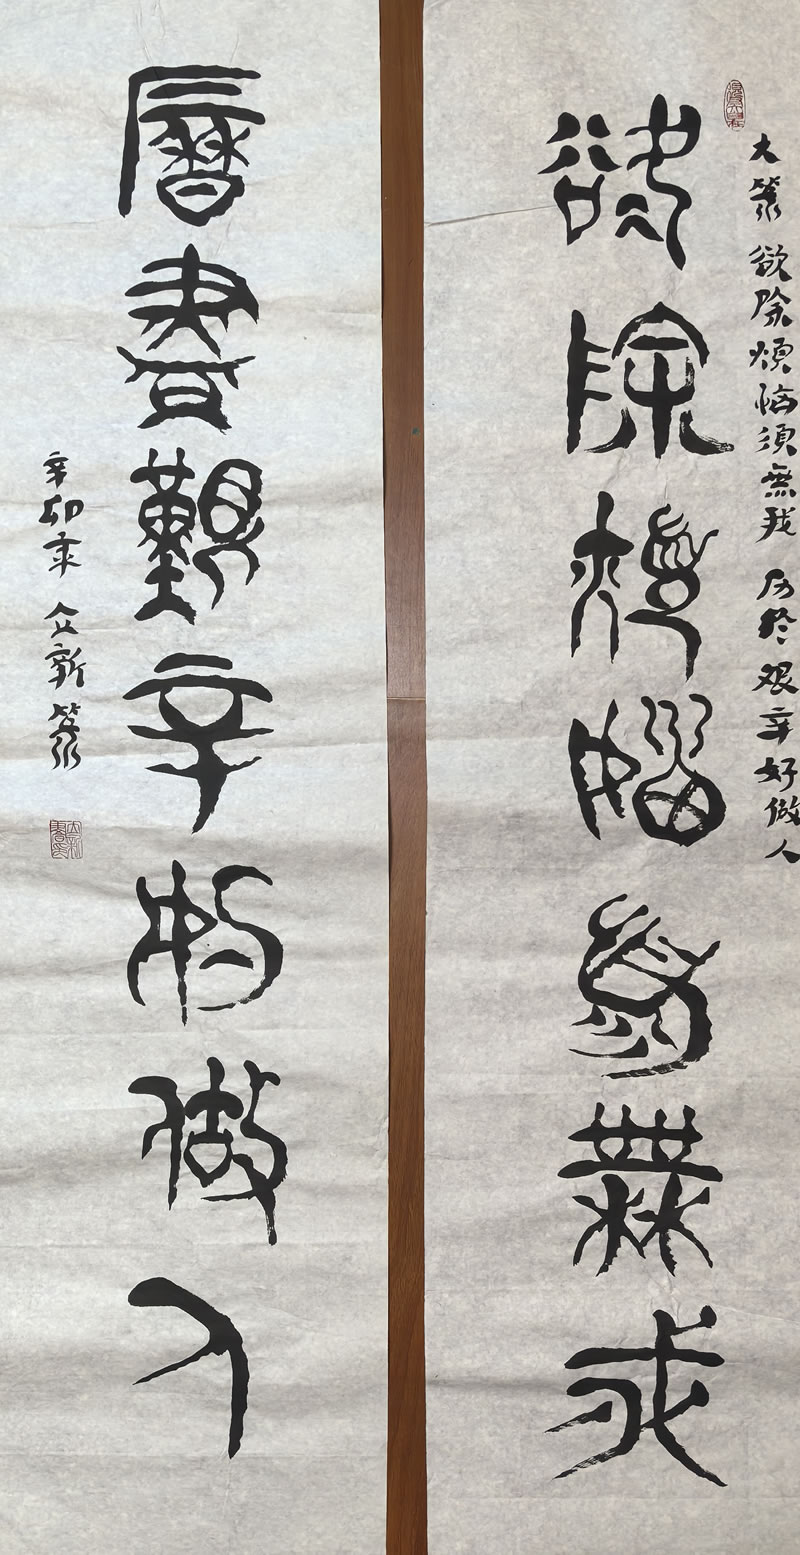 大篆 欲除煩恼須無我 历尽艰辛好做人
欲除煩惱須無我
曆盡艱辛好做人
辛卯年 新篆